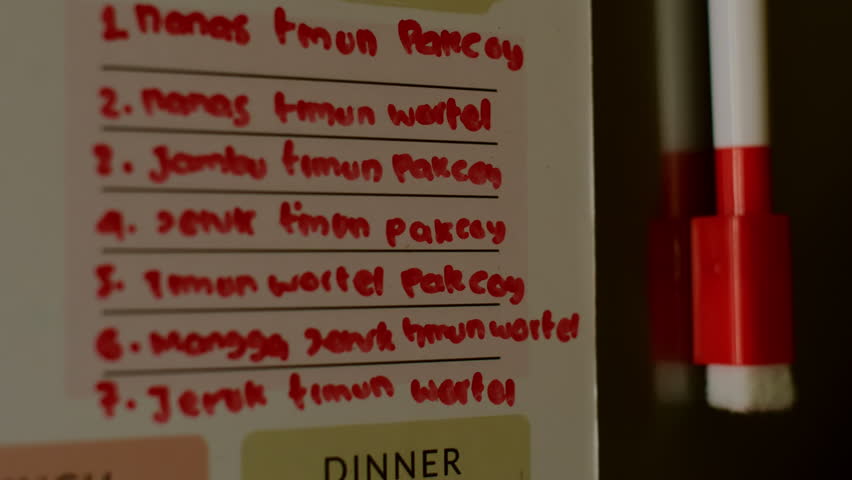 1 nanas tmun Pakcoy
2. nanas timun wortel
3. Jambu timun Pakcoy
4. Jeruk timun pakcoy
5. Timun wortel Pakcoy
6. Mangga Jeruk timun wortel
7. Jeruk timun wortel
DINNER